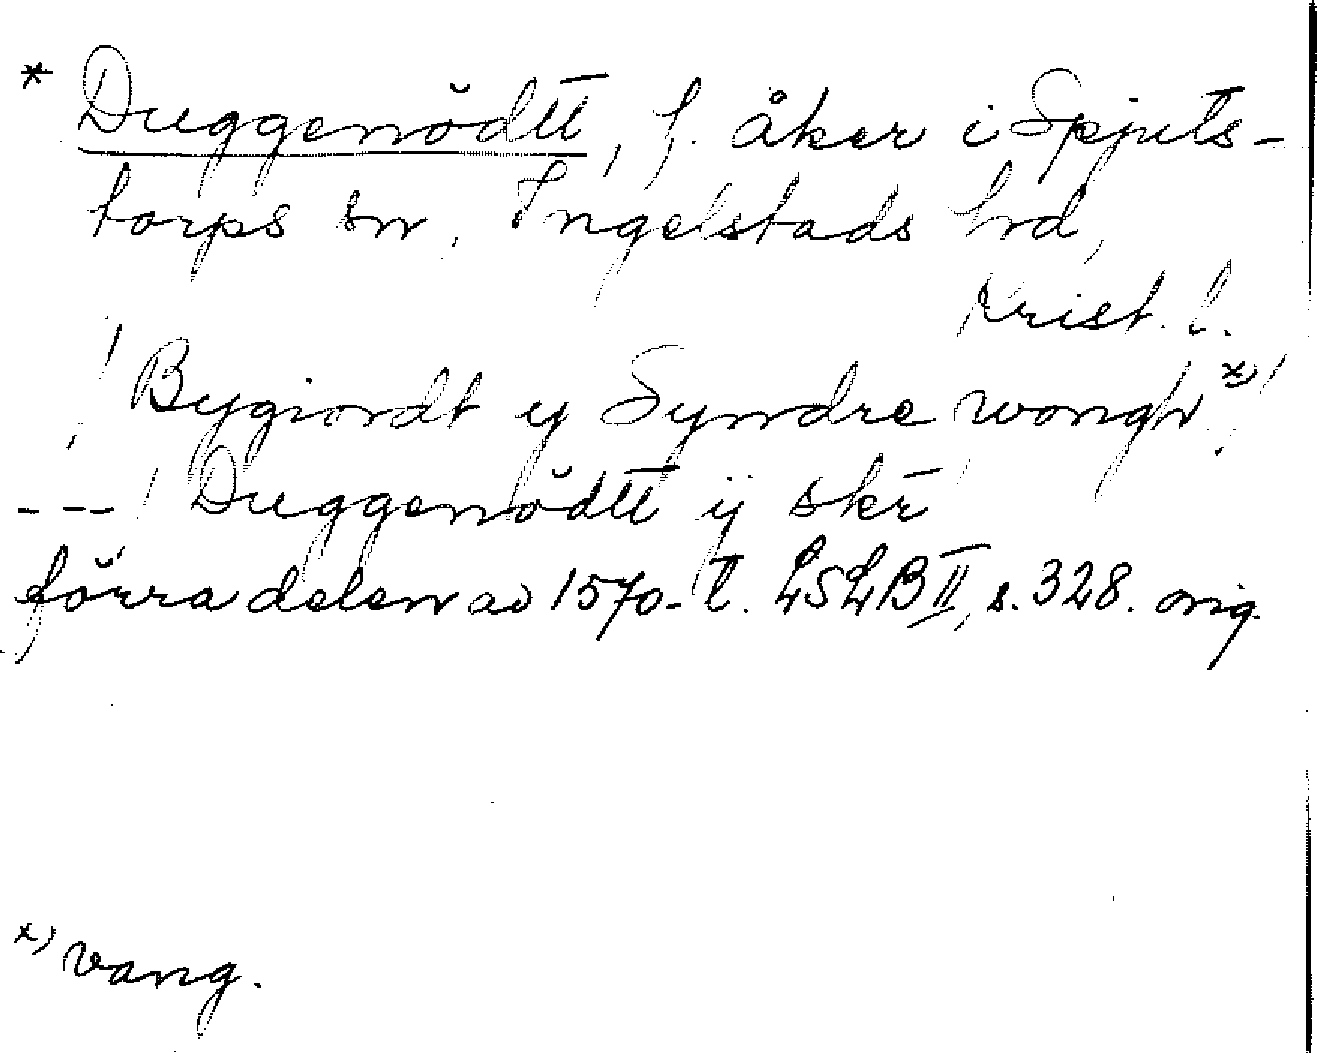 * Duggenödtt, f. åker i Spjuts-
torps sn, Ingelstads hd,
Krist. l.
! Bygiordt ij Syndre wongh x) !
--- ! Duggenödtt ij skr̄ !
förra delen av 1570-t. LSLB II, s. 328. orig.
x) vang.